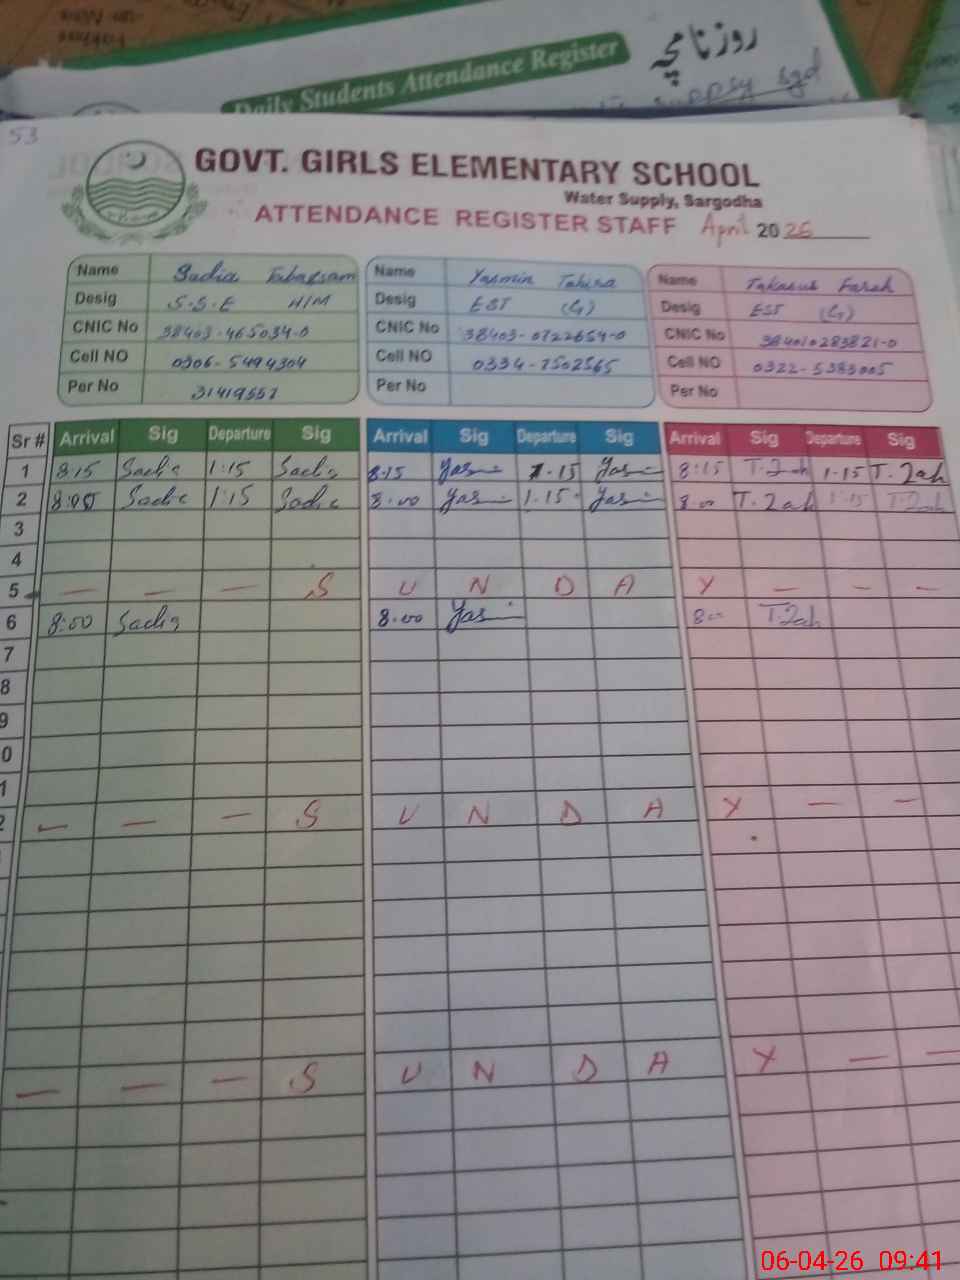 روزنامچہ
Daily Students Attendance Register
supply sgd
53
GOVT. GIRLS ELEMENTARY SCHOOL
Water Supply, Sargodha
ATTENDANCE REGISTER STAFF April 2026
Name Sadia Tabassam Name Yasmin Tahira Name Takasus Farah
Desig S.S.E H/M Desig EST (G) Desig EST (G)
CNIC No 38403-465034-0 CNIC No 38403-0722654-0 CNIC No 384010283821-0
Cell NO 0306-5494304 Cell NO 0334-7502565 Cell NO 0322-5383005
Per No 31419557 Per No Per No
Sr # Arrival Sig Departure Sig Arrival Sig Departure Sig Arrival Sig Departure Sig
1 8:15 Sadia 1:15 Sadia 8:15 Yas 1.15 Yas 8:15 T.Zah 1.15 T.Zah
2 8:00 Sadia 1:15 Sadia 8.00 Yas 1.15 Yas 8.00 T.Zah 1:15 T.Zah
3
4
5 — — — S U N D A Y — — —
6 8:00 Sadia 8.00 Yas 8:00 T.Zah
7
8
9
0
1
2 — — — S U N D A Y — —
— — — S U N D A Y — —
06-04-26 09:41